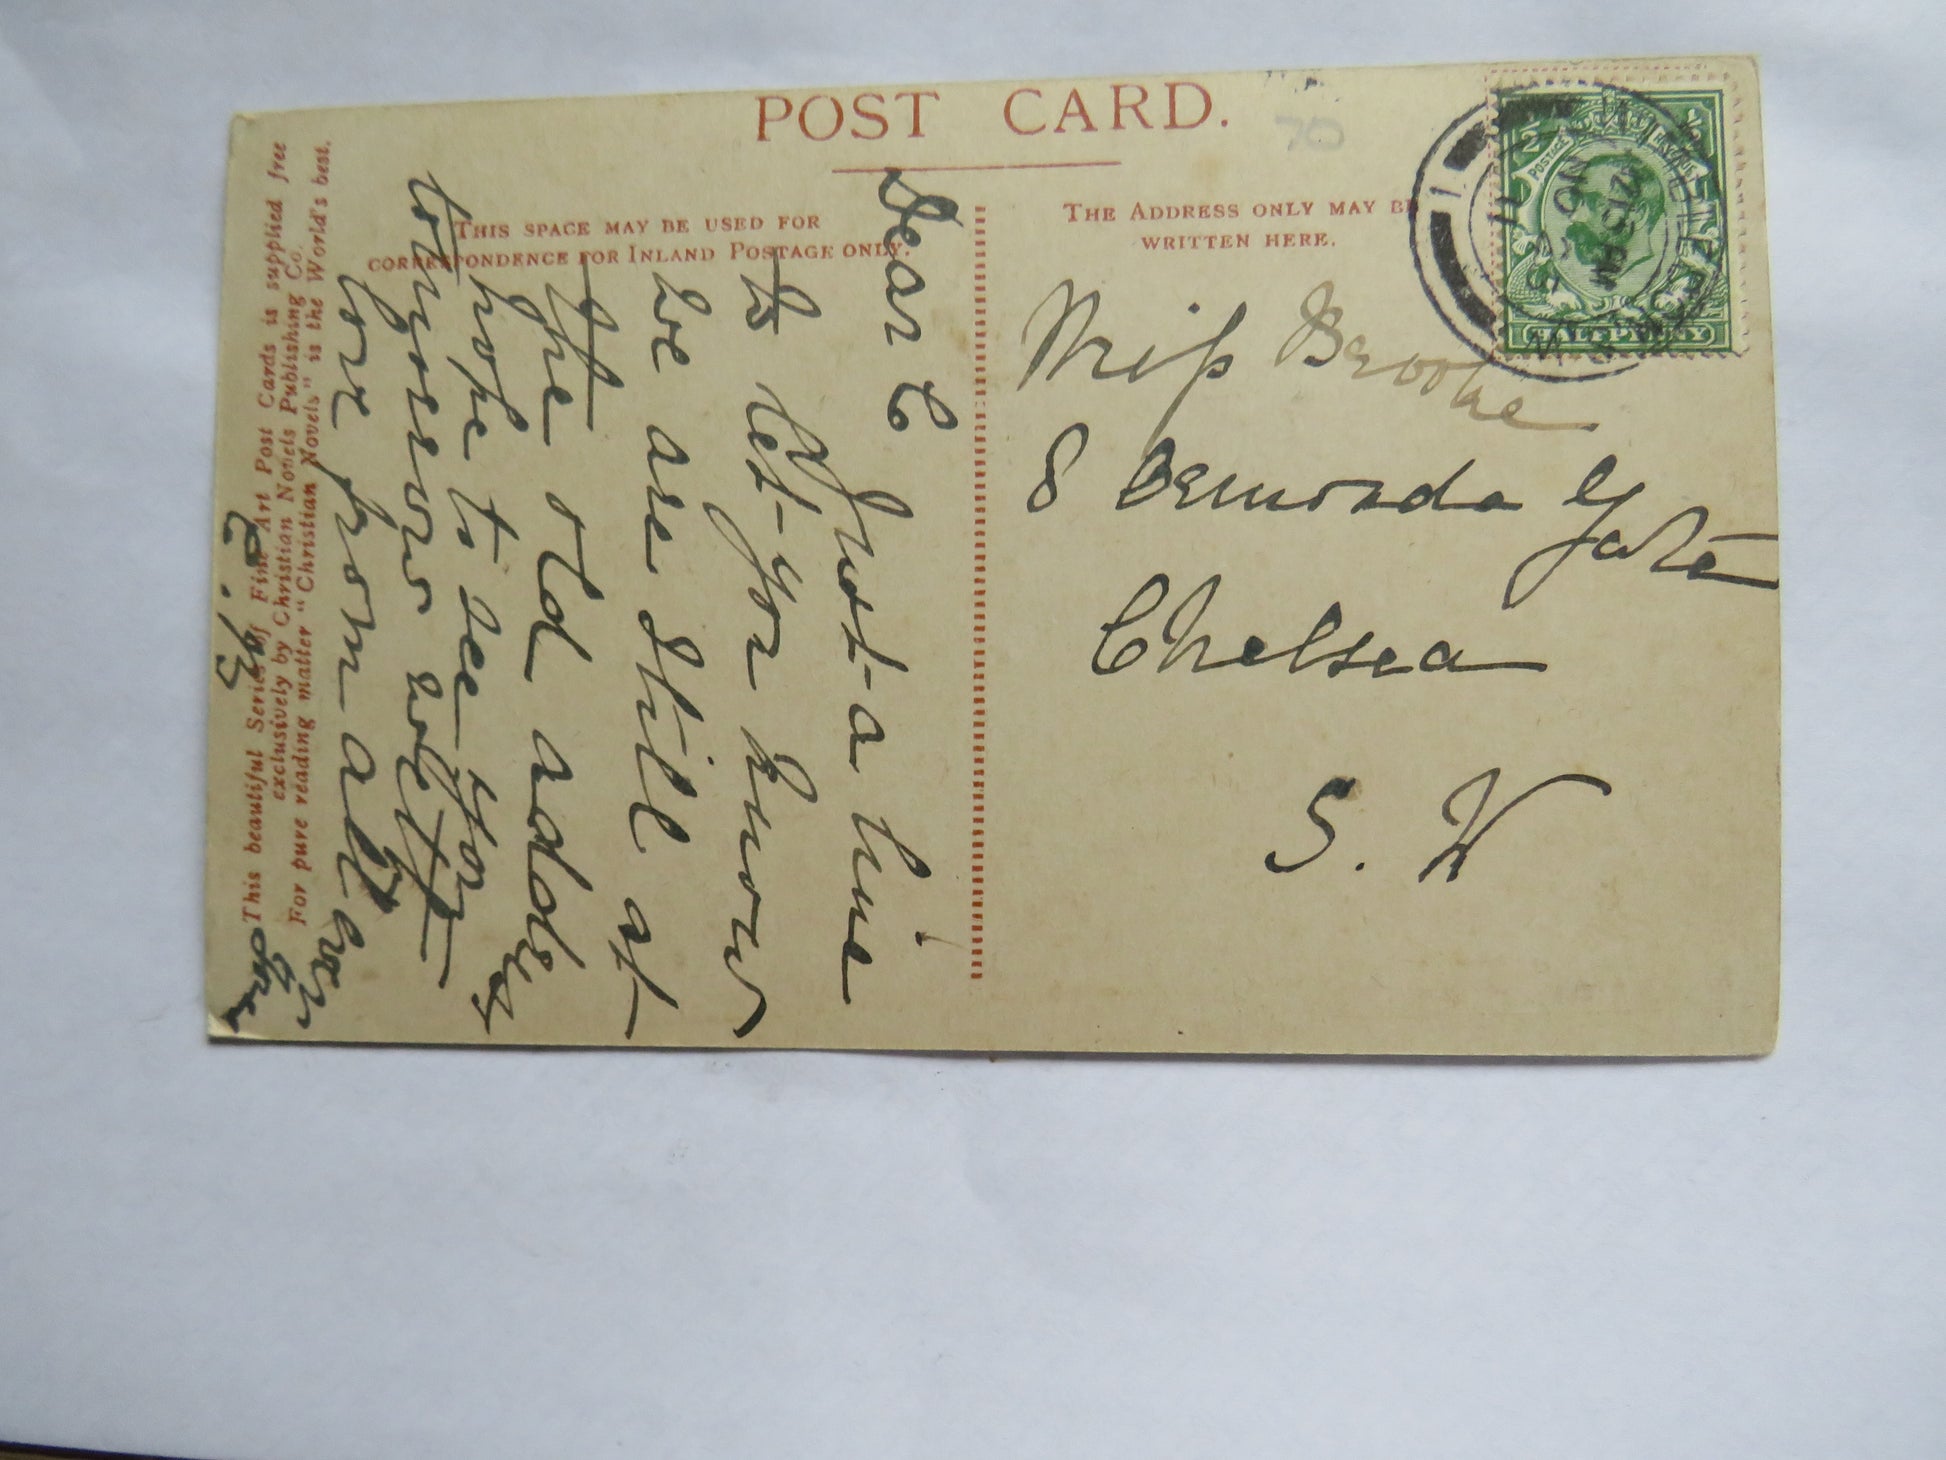 POST CARD.
THIS SPACE MAY BE USED FOR
CORRESPONDENCE FOR INLAND POSTAGE ONLY.
THE ADDRESS ONLY MAY BE
WRITTEN HERE.
This beautiful Series of Fine Art Post Cards is supplied free
exclusively by Christian Novels Publishing Co.
For pure reading matter "Christian Novels" is the World's best.
Dear C
Just a line
to let you know
we are still at
the old address
hope to see you
tomorrow with
love from all
Miss Brooke
8 Bermonda Gate
Chelsea
S. W
POSTAGE
HALFPENNY
12.15 PM
NO
11
70